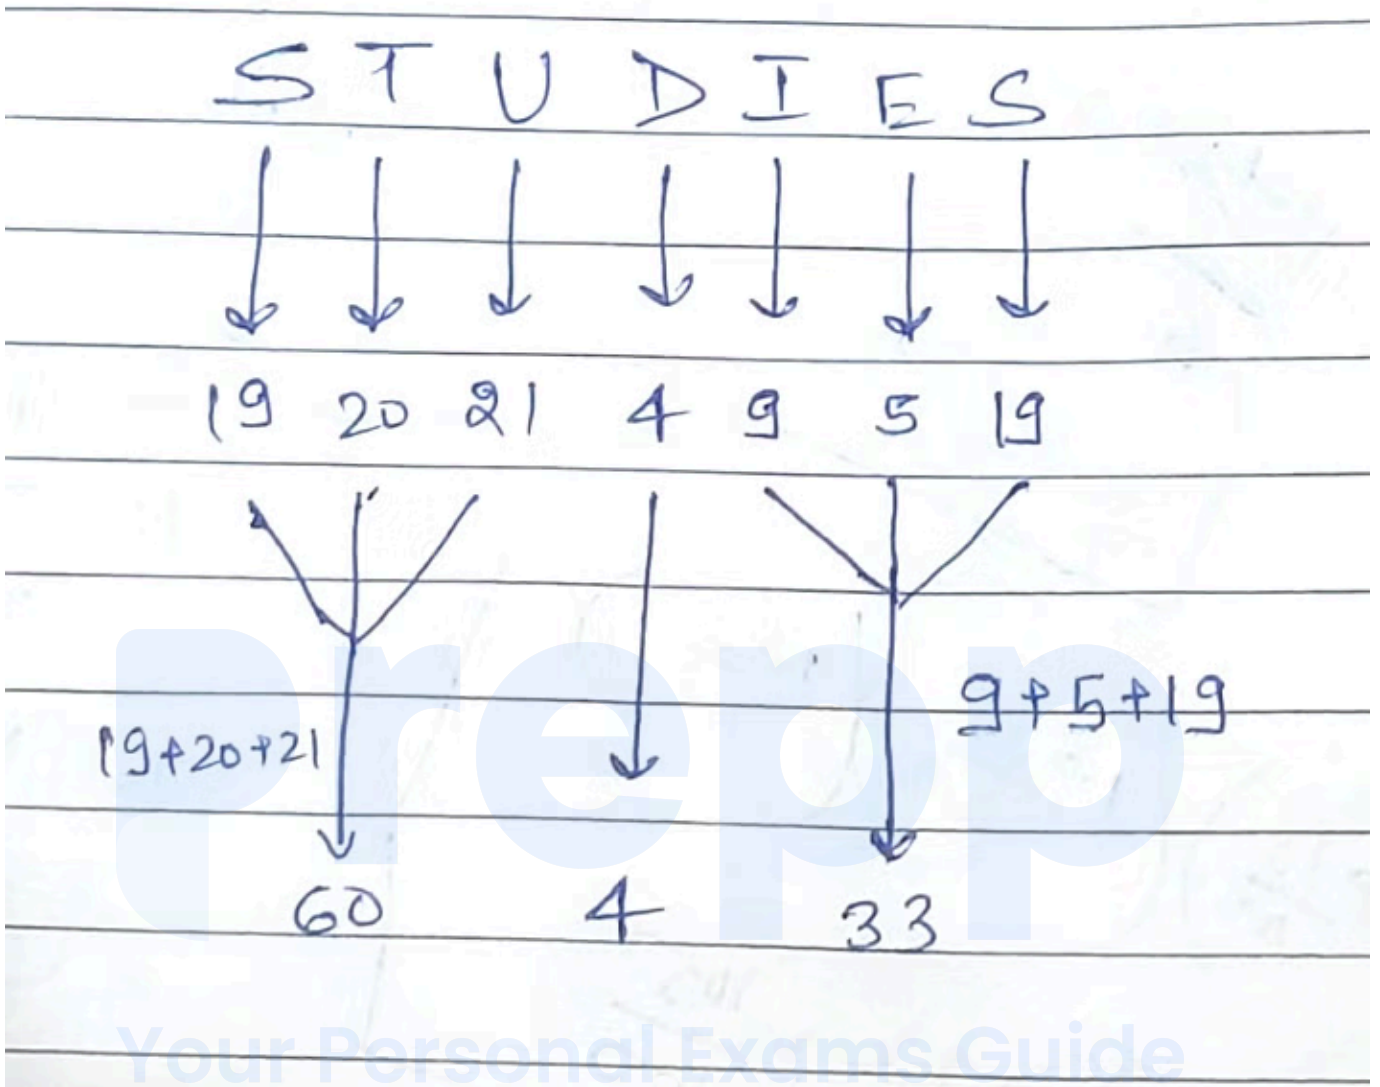 S T U D I E S
19 20 21 4 9 5 19
19+20+21 9+5+19
60 4 33
prepp
Your Personal Exams Guide